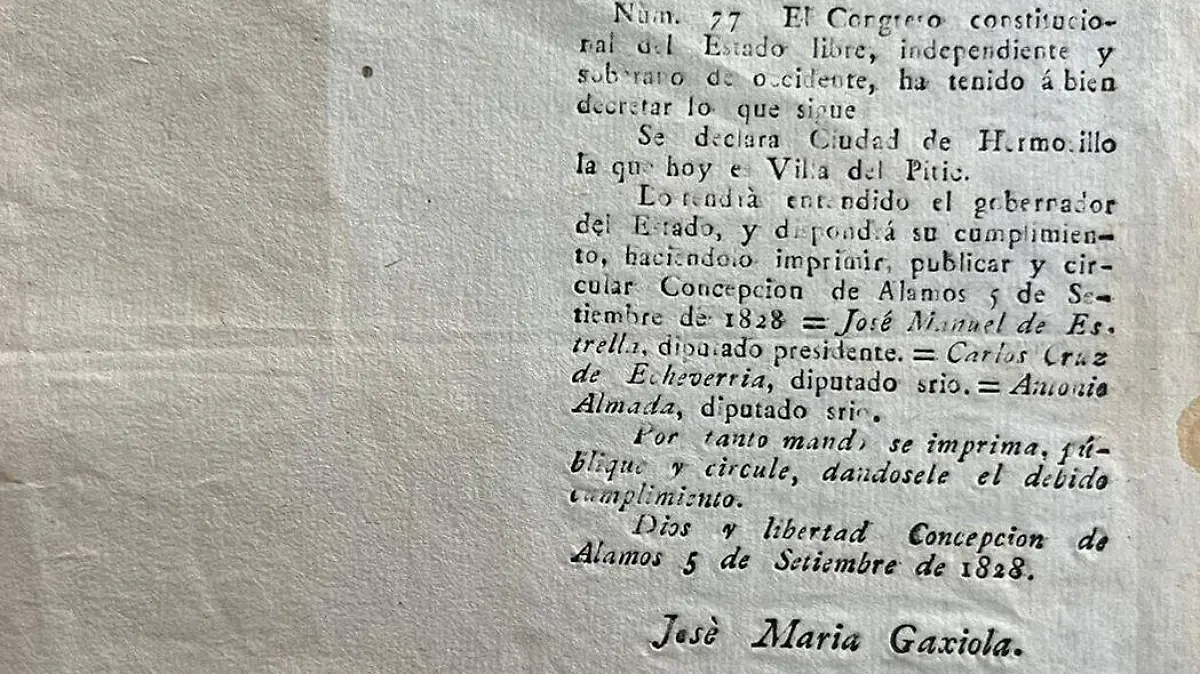 Núm. 77 El Congreso constitucio-
nal del Estado libre, independiente y
soberano de occidente, ha tenido á bien
decretar lo que sigue
Se declara Ciudad de Hermosillo
la que hoy es Villa del Pitic.
Lo tendrà entendido el gobernador
del Estado, y dispondrá su cumplimien-
to, haciendolo imprimir, publicar y cir-
cular Concepcion de Alamos 5 de Se-
tiembre de 1828 = José Manuel de Es-
trella, diputado presidente. = Carlos Cruz
de Echeverria, diputado srio. = Antonio
Almada, diputado srio.
Por tanto mando se imprima, pú-
blique y circule, dandosele el debido
cumplimiento.
Dios y libertad Concepcion de
Alamos 5 de Setiembre de 1828.
Josè Maria Gaxiola.